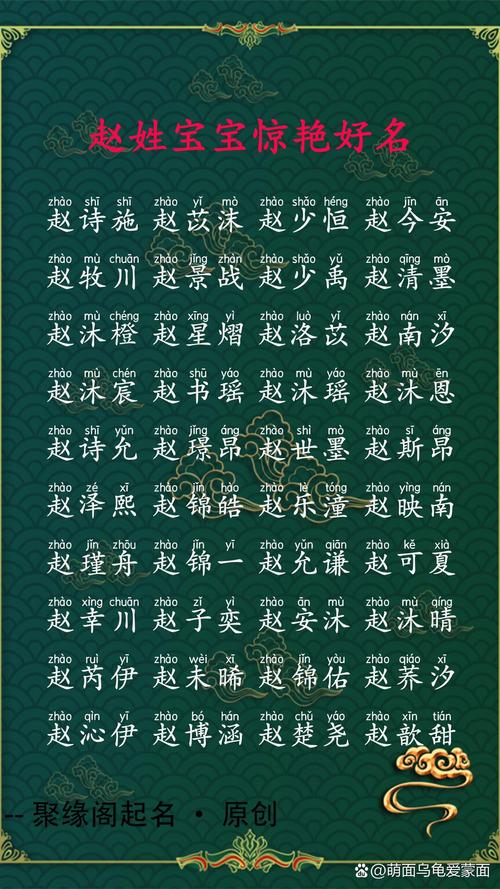 赵姓宝宝惊艳好名
zhào shī shī zhào yǐ mò zhào shǎo héng zhào jīn ān
赵诗施 赵苡沫 赵少恒 赵今安
zhào mù chuān zhào jǐng zhàn zhào shǎo yǔ zhào qīng mò
赵牧川 赵景战 赵少禹 赵清墨
zhào mù chéng zhào xīng yì zhào luò yǐ zhào nán xī
赵沐橙 赵星熠 赵洛苡 赵南汐
zhào mù chén zhào shū yáo zhào mù yáo zhào mù ēn
赵沐宸 赵书瑶 赵沐瑶 赵沐恩
zhào shī yǔn zhào jǐng áng zhào shì mò zhào sī áng
赵诗允 赵璟昂 赵世墨 赵斯昂
zhào zé xī zhào jǐn hào zhào lè tóng zhào yìng nán
赵泽熙 赵锦皓 赵乐潼 赵映南
zhào jǐn zhōu zhào jǐn yī zhào yǔn qiān zhào kě xià
赵瑾舟 赵锦一 赵允谦 赵可夏
zhào xìng chuān zhào zǐ yì zhào ān mù zhào mù qíng
赵幸川 赵子奕 赵安沐 赵沐晴
zhào ruì yī zhào wèi xī zhào jǐn yòu zhào qiáo xī
赵芮伊 赵未晞 赵锦佑 赵荞汐
zhào qìn yī zhào bó hán zhào chǔ yáo zhào xīn tián
赵沁伊 赵博涵 赵楚尧 赵歆甜
-- 聚缘阁起名 · 原创
萌面乌龟爱蒙面